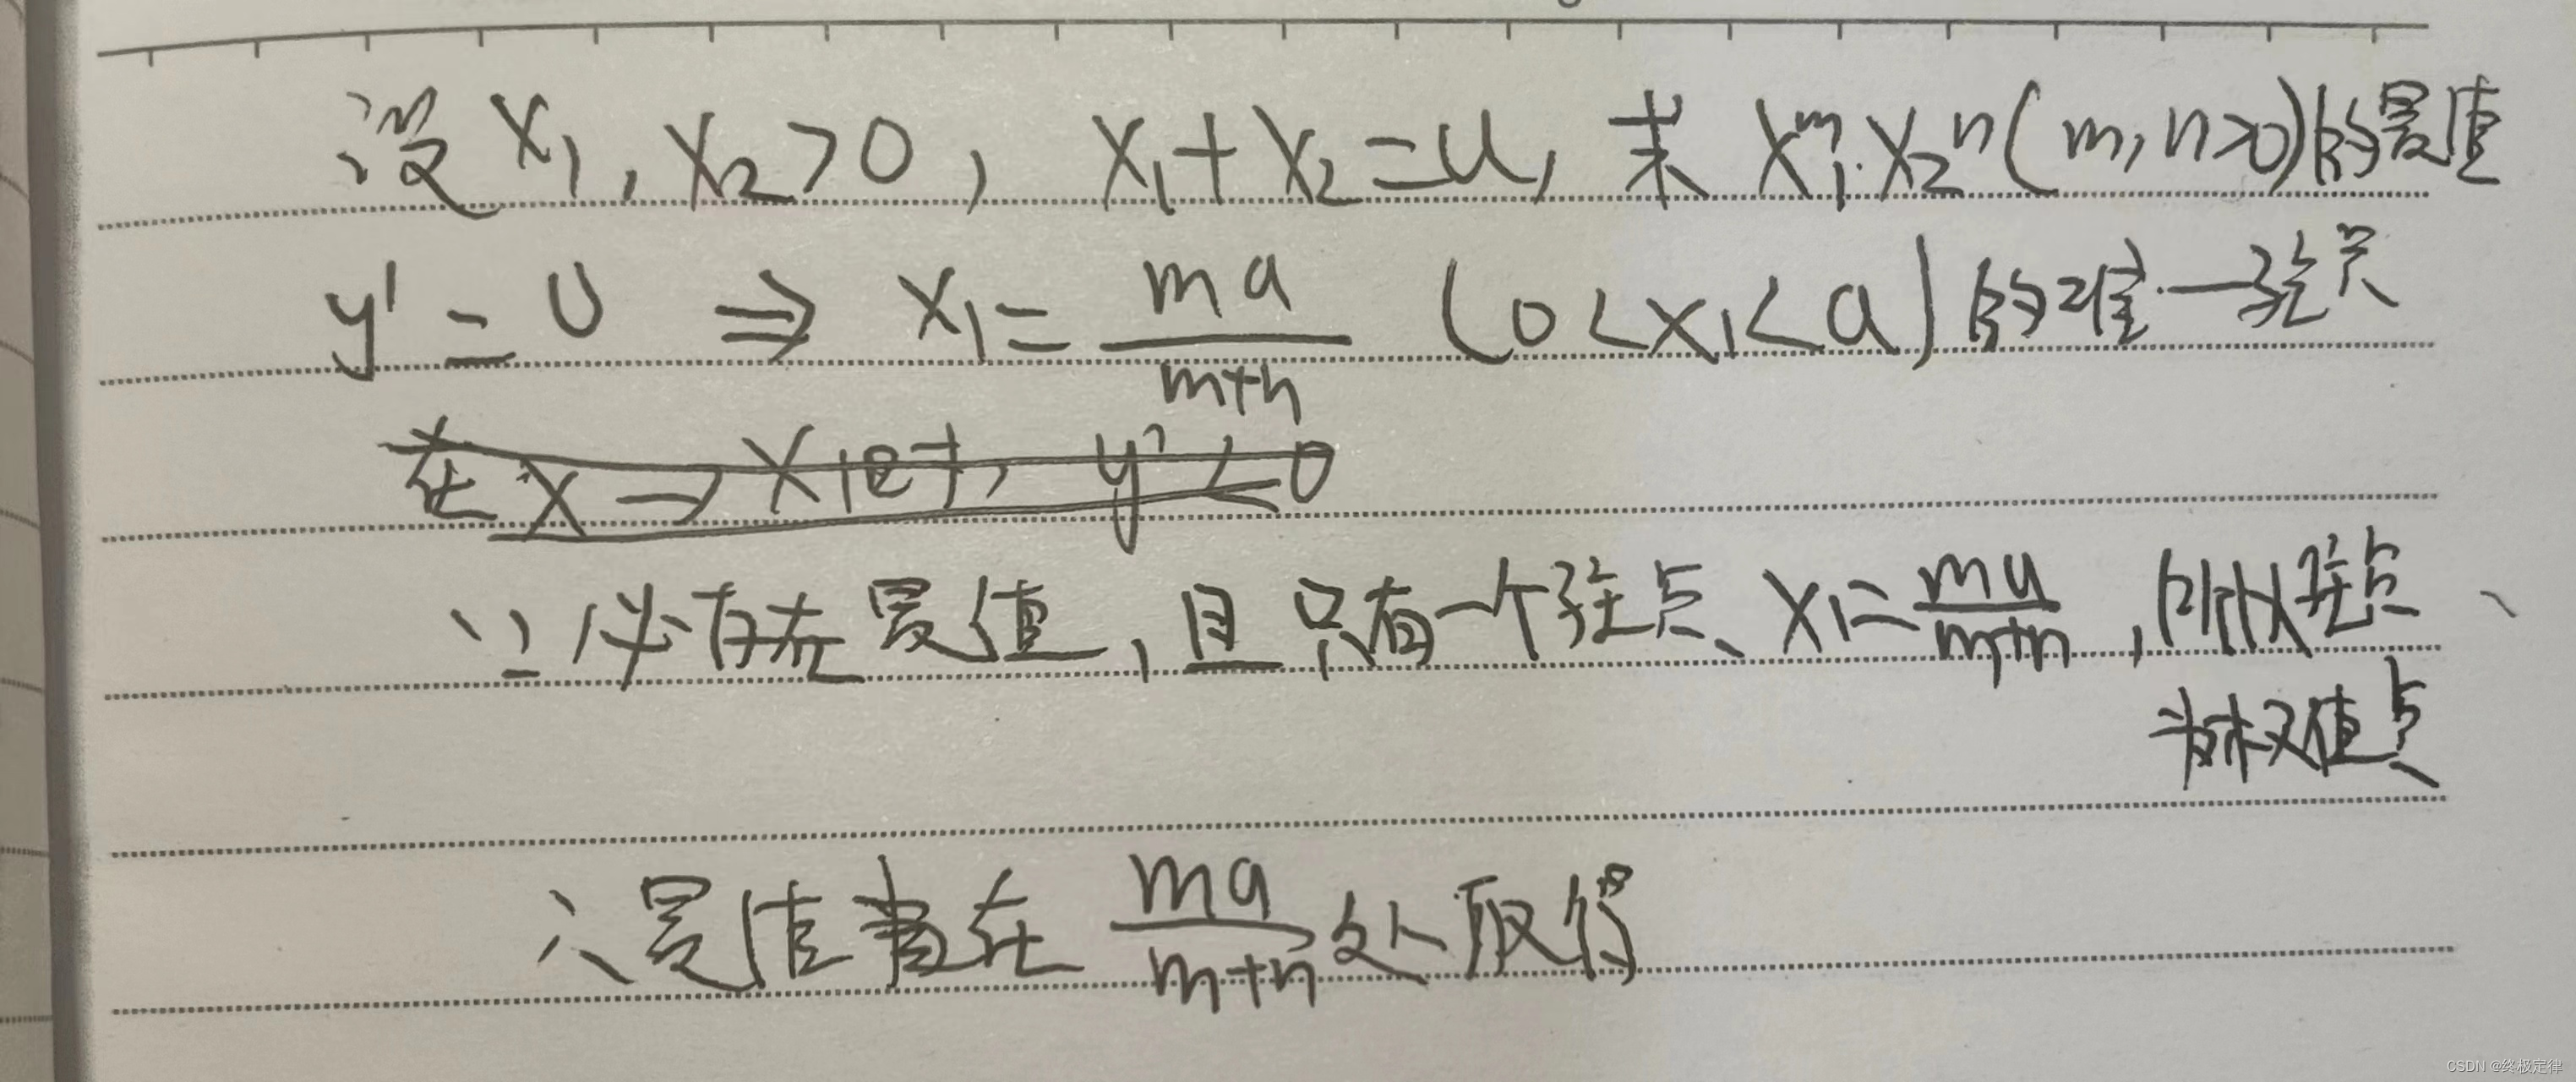 设 x₁, x₂>0, x₁+x₂=a, 求 x₁ᵐ·x₂ⁿ(m,n>0)的最值
y'=0 ⇒ x₁= ma/(m+n) (0<x₁<a)的唯一驻点
在x→x₁时, y'<0
∵必存在最值,且只有一个驻点、x₁= ma/(m+n) ,所以驻点、
为极值点
∴最值在 ma/(m+n) 处取得
CSDN @终极定律